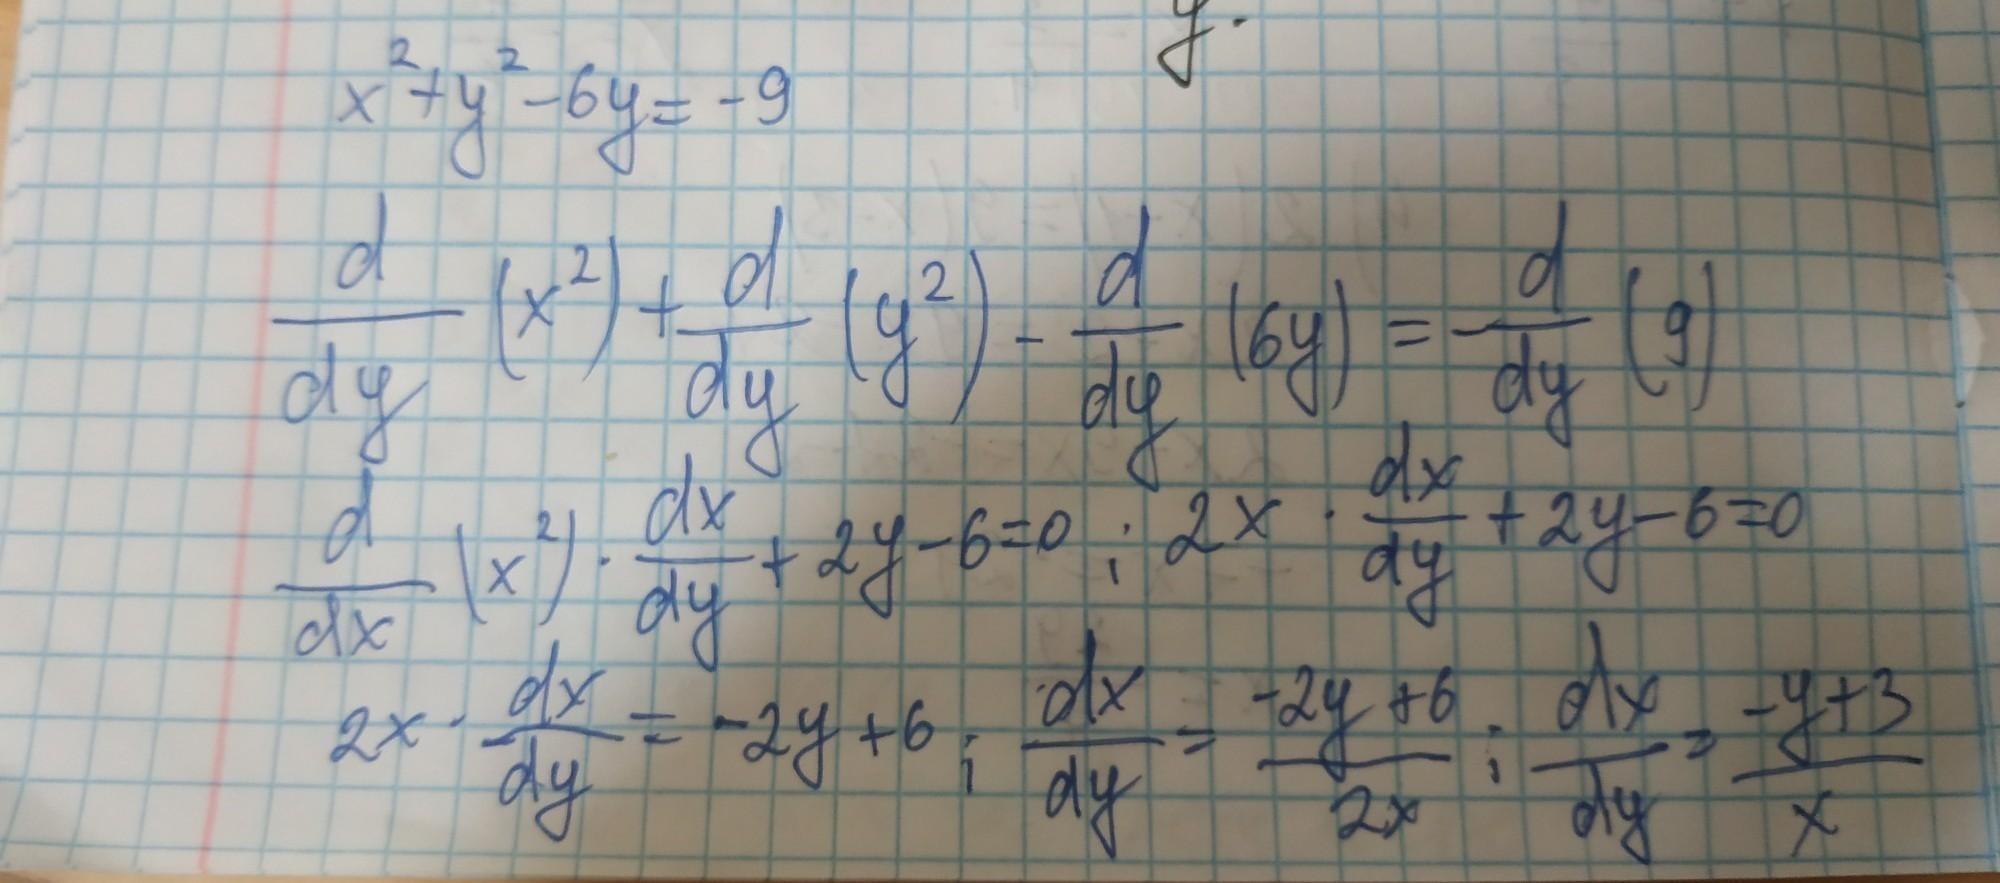 y.
x² + y² - 6y = -9
d/dy (x²) + d/dy (y²) - d/dy (6y) = - d/dy (9)
d/dx (x²) · dx/dy + 2y - 6 = 0 ; 2x · dx/dy + 2y - 6 = 0
2x · dx/dy = -2y + 6 ; dx/dy = (-2y + 6)/2x ; dx/dy = (-y + 3)/x